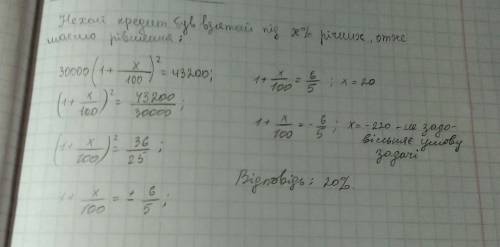 Нехай кредит був взятий під x% річних, отже
маємо рівняння:
30000(1 + x/100)² = 43200;
(1 + x/100)² = 43200/30000;
(1 + x/100)² = 36/25;
1 + x/100 = ± 6/5;
1 + x/100 = 6/5; x = 20
1 + x/100 = - 6/5; x = -220 - не задо-
вільняє умову
задачі
Відповідь: 20%.